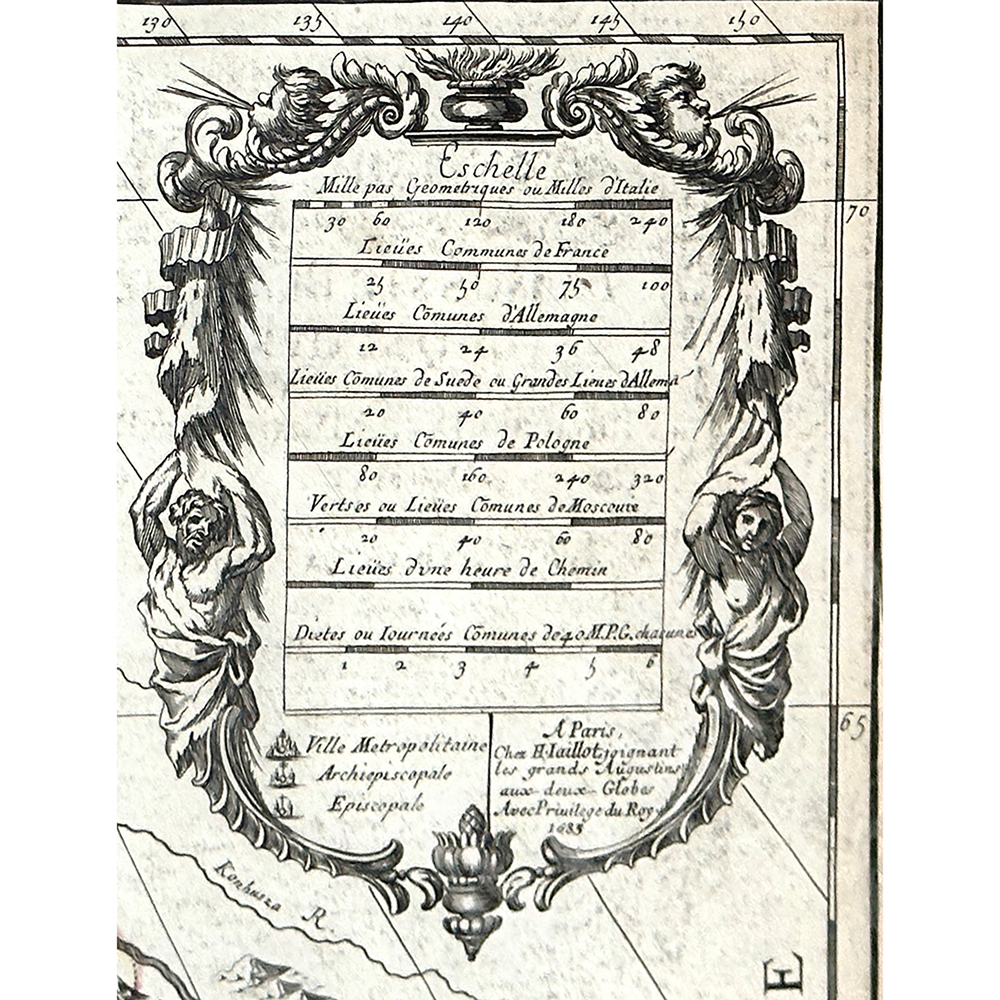 130 135 140 145 150
Eschelle
Mille pas Geometriques ou Milles d'Italie
30 60 120 180 240
70
Lieües Communes de France
25 50 75 100
Lieües Cõmunes d'Allemagne
12 24 36 48
Lieües Cõmunes de Suede ou Grandes Lieues d'Allema
20 40 60 80
Lieües Cõmunes de Pologne
80 160 240 320
Verstes ou Lieües Cõmunes de Moscovie
20 40 60 80
Lieües d'une heure de Chemin
Dietes ou Iournées Cõmunes de 40 M.P.G. chacunes
1 2 3 4 5 6
65
Ville Metropolitaine
Archiepiscopale
Episcopale
A Paris,
Chez H. Iaillot, joignant
les grands Augustins
aux deux Globes
Avec Privilege du Roy
1685
Konhusza R.
E